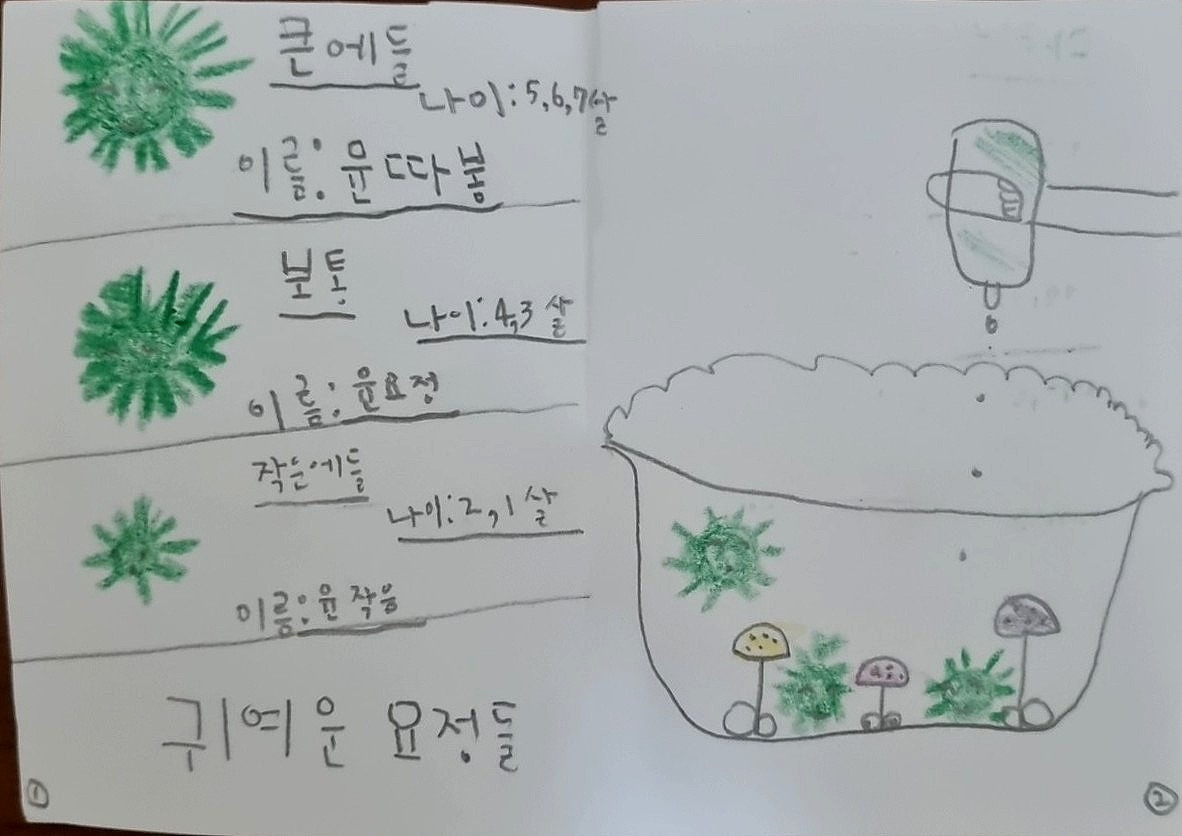 큰에들
나이:5,6,7살
이름:윤따봄
보통
나이:4,3살
이름:윤요정
작은에들
나이:2,1살
이름:윤작음
귀여운 요정들
①
②